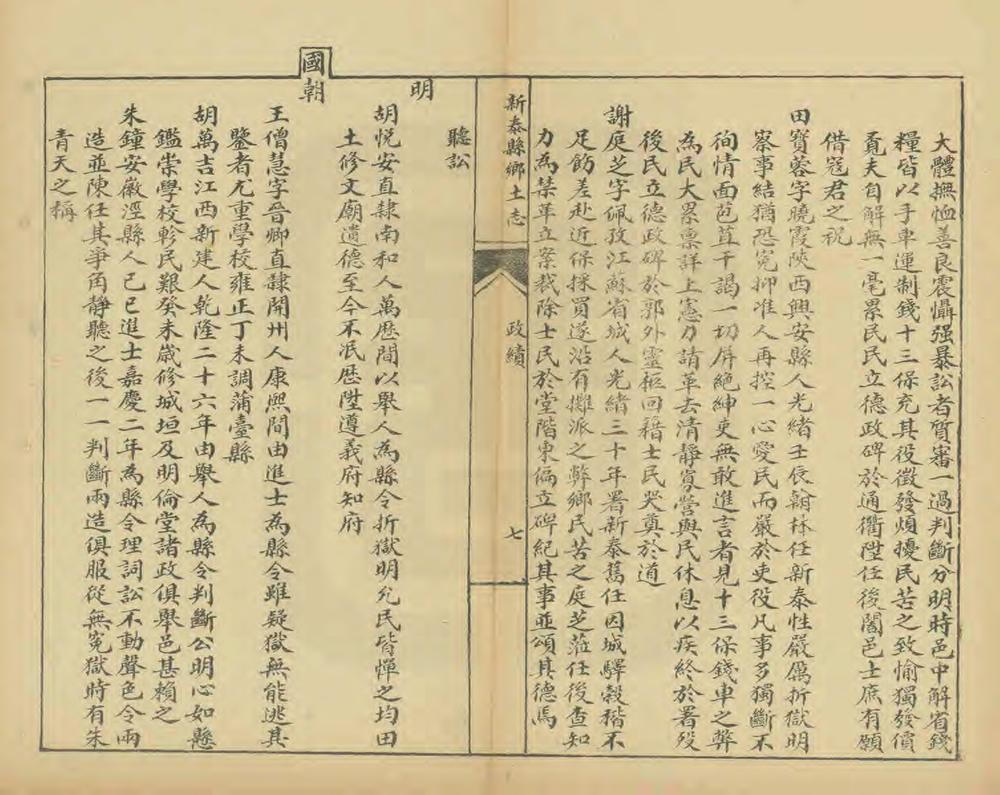 大體撫恤善良震懾强暴訟者質審一過判斷分明時邑中解省錢
糧皆以手車運制錢十三保充其役徵發煩擾民苦之致愉獨發價
賫夫自解無一毫累民民立德政碑於通衢陞任後闔邑士庶有願
借寇君之祝
田寶蓉字曉霞陝西興安縣人光緒壬辰翰林任新泰性嚴厲折獄明
察事結猶恐冤抑准人再控一心愛民而嚴於吏役凡事多獨斷不
徇情面苞苴干謁一切屏絶紳吏無敢進言者見十三保錢車之弊
為民大累稟詳上憲力請革去清静寡營與民休息以疾終於署殁
後民立德政碑於郭外靈柩回籍士民哭奠於道
謝庭芝字佩孜江蘇省城人光緒三十年署新泰舊任因城驛穀稭不
足飭差赴近保採買遂沿有攤派之弊鄉民苦之庭芝蒞任後查知
力為禁革立案裁除士民於堂階東偏立碑紀其事並頌其德焉
新泰縣鄉土志
政績
七
聽訟
明
胡悅安直隸南和人萬歷間以舉人為縣令折獄明允民皆憚之均田
土修文廟遺德至今不泯歷陞遵義府知府
國朝
王僧慧字晉卿直隸開州人康熙間由進士為縣令雖疑獄無能逃其
鑒者尤重學校雍正丁未調蒲臺縣
胡萬吉江西新建人乾隆二十六年由舉人為縣令判斷公明心如懸
鑑崇學校軫民艱癸未歲修城垣及明倫堂諸政俱舉邑甚賴之
朱鐘安徽涇縣人己巳進士嘉慶二年為縣令理詞訟不動聲色令兩
造並陳任其爭角静聽之後一一判斷兩造俱服從無冤獄時有朱
青天之稱